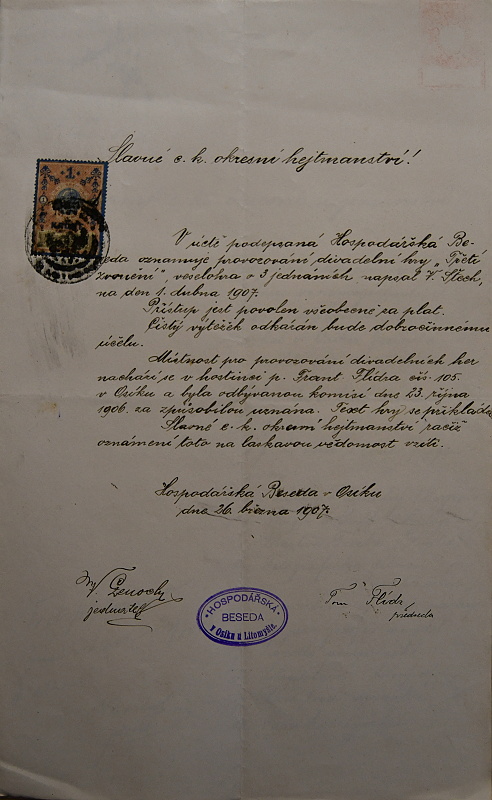 Slavné c. k. okresní hejtmanství!
1
V úctě podepsaná Hospodářská Be-
seda oznamuje provozování divadelní hry „Třetí
zvonění", veselohra o 3 jednáních napsal V. Štech,
na den 1. dubna 1907.
Přístup jest povolen všeobecně za plat.
Čistý výtěžek odkázán bude dobročinnému
účelu.
Místnost pro provozování divadelních her
nachází se v hostinci p. Frant Flídra čís. 105.
v Osíku a byla odbývanou komisí dne 23. října
1906. za způsobilou uznána. Text hry se přikládá.
Slavné c. k. okresní hejtmanství račiž
oznámení toto na laskavou vědomost vzíti.
Hospodářská Beseda v Osíku
dne 26. března 1907.
jednatel
HOSPODÁŘSKÁ
BESEDA
v Osíku u Litomyšle.
Flídr
předseda